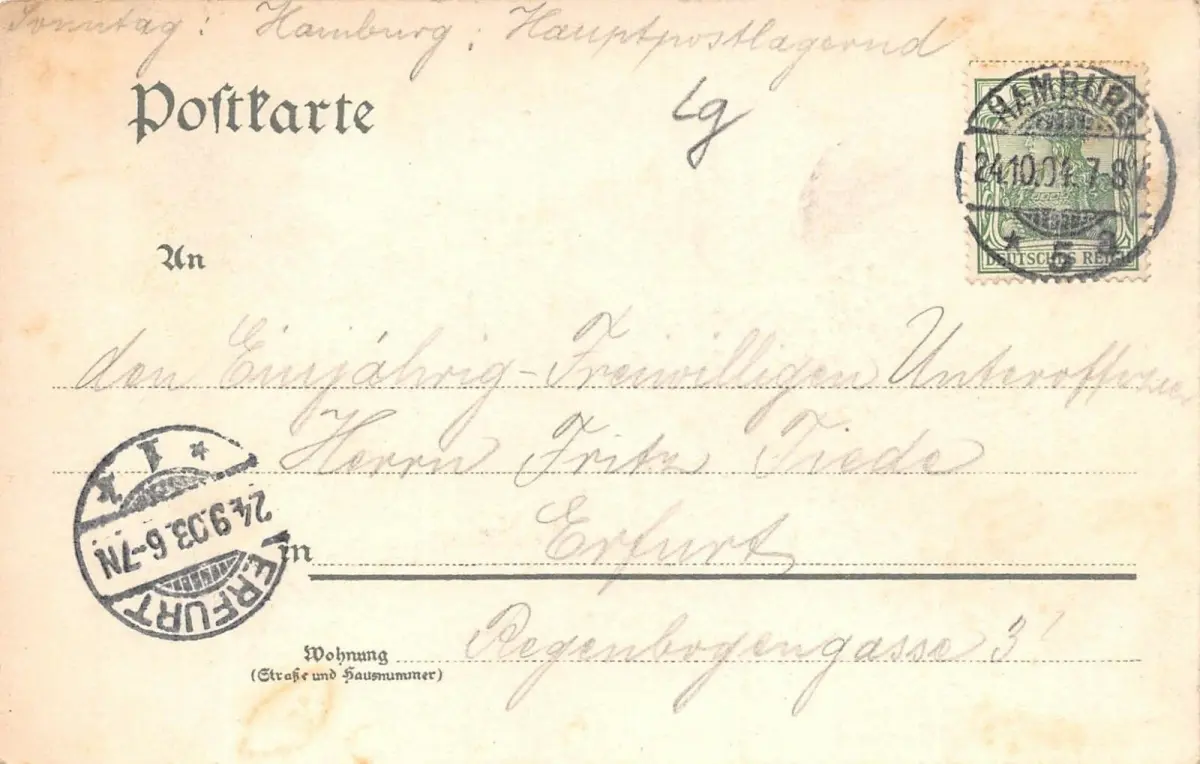 Sonntag: Hamburg: Hauptpostlagernd
Postkarte
lg
HAMBURG
24.10.04. 7-8V
* 5 a
DEUTSCHES REICH
An
den Einjährig-Freiwilligen Unteroffizier
Herrn Fritz Tiede
in Erfurt
* 1 *
24.9.03. 6-7N
ERFURT
Wohnung
(Straße und Hausnummer)
Regenbogengasse 3